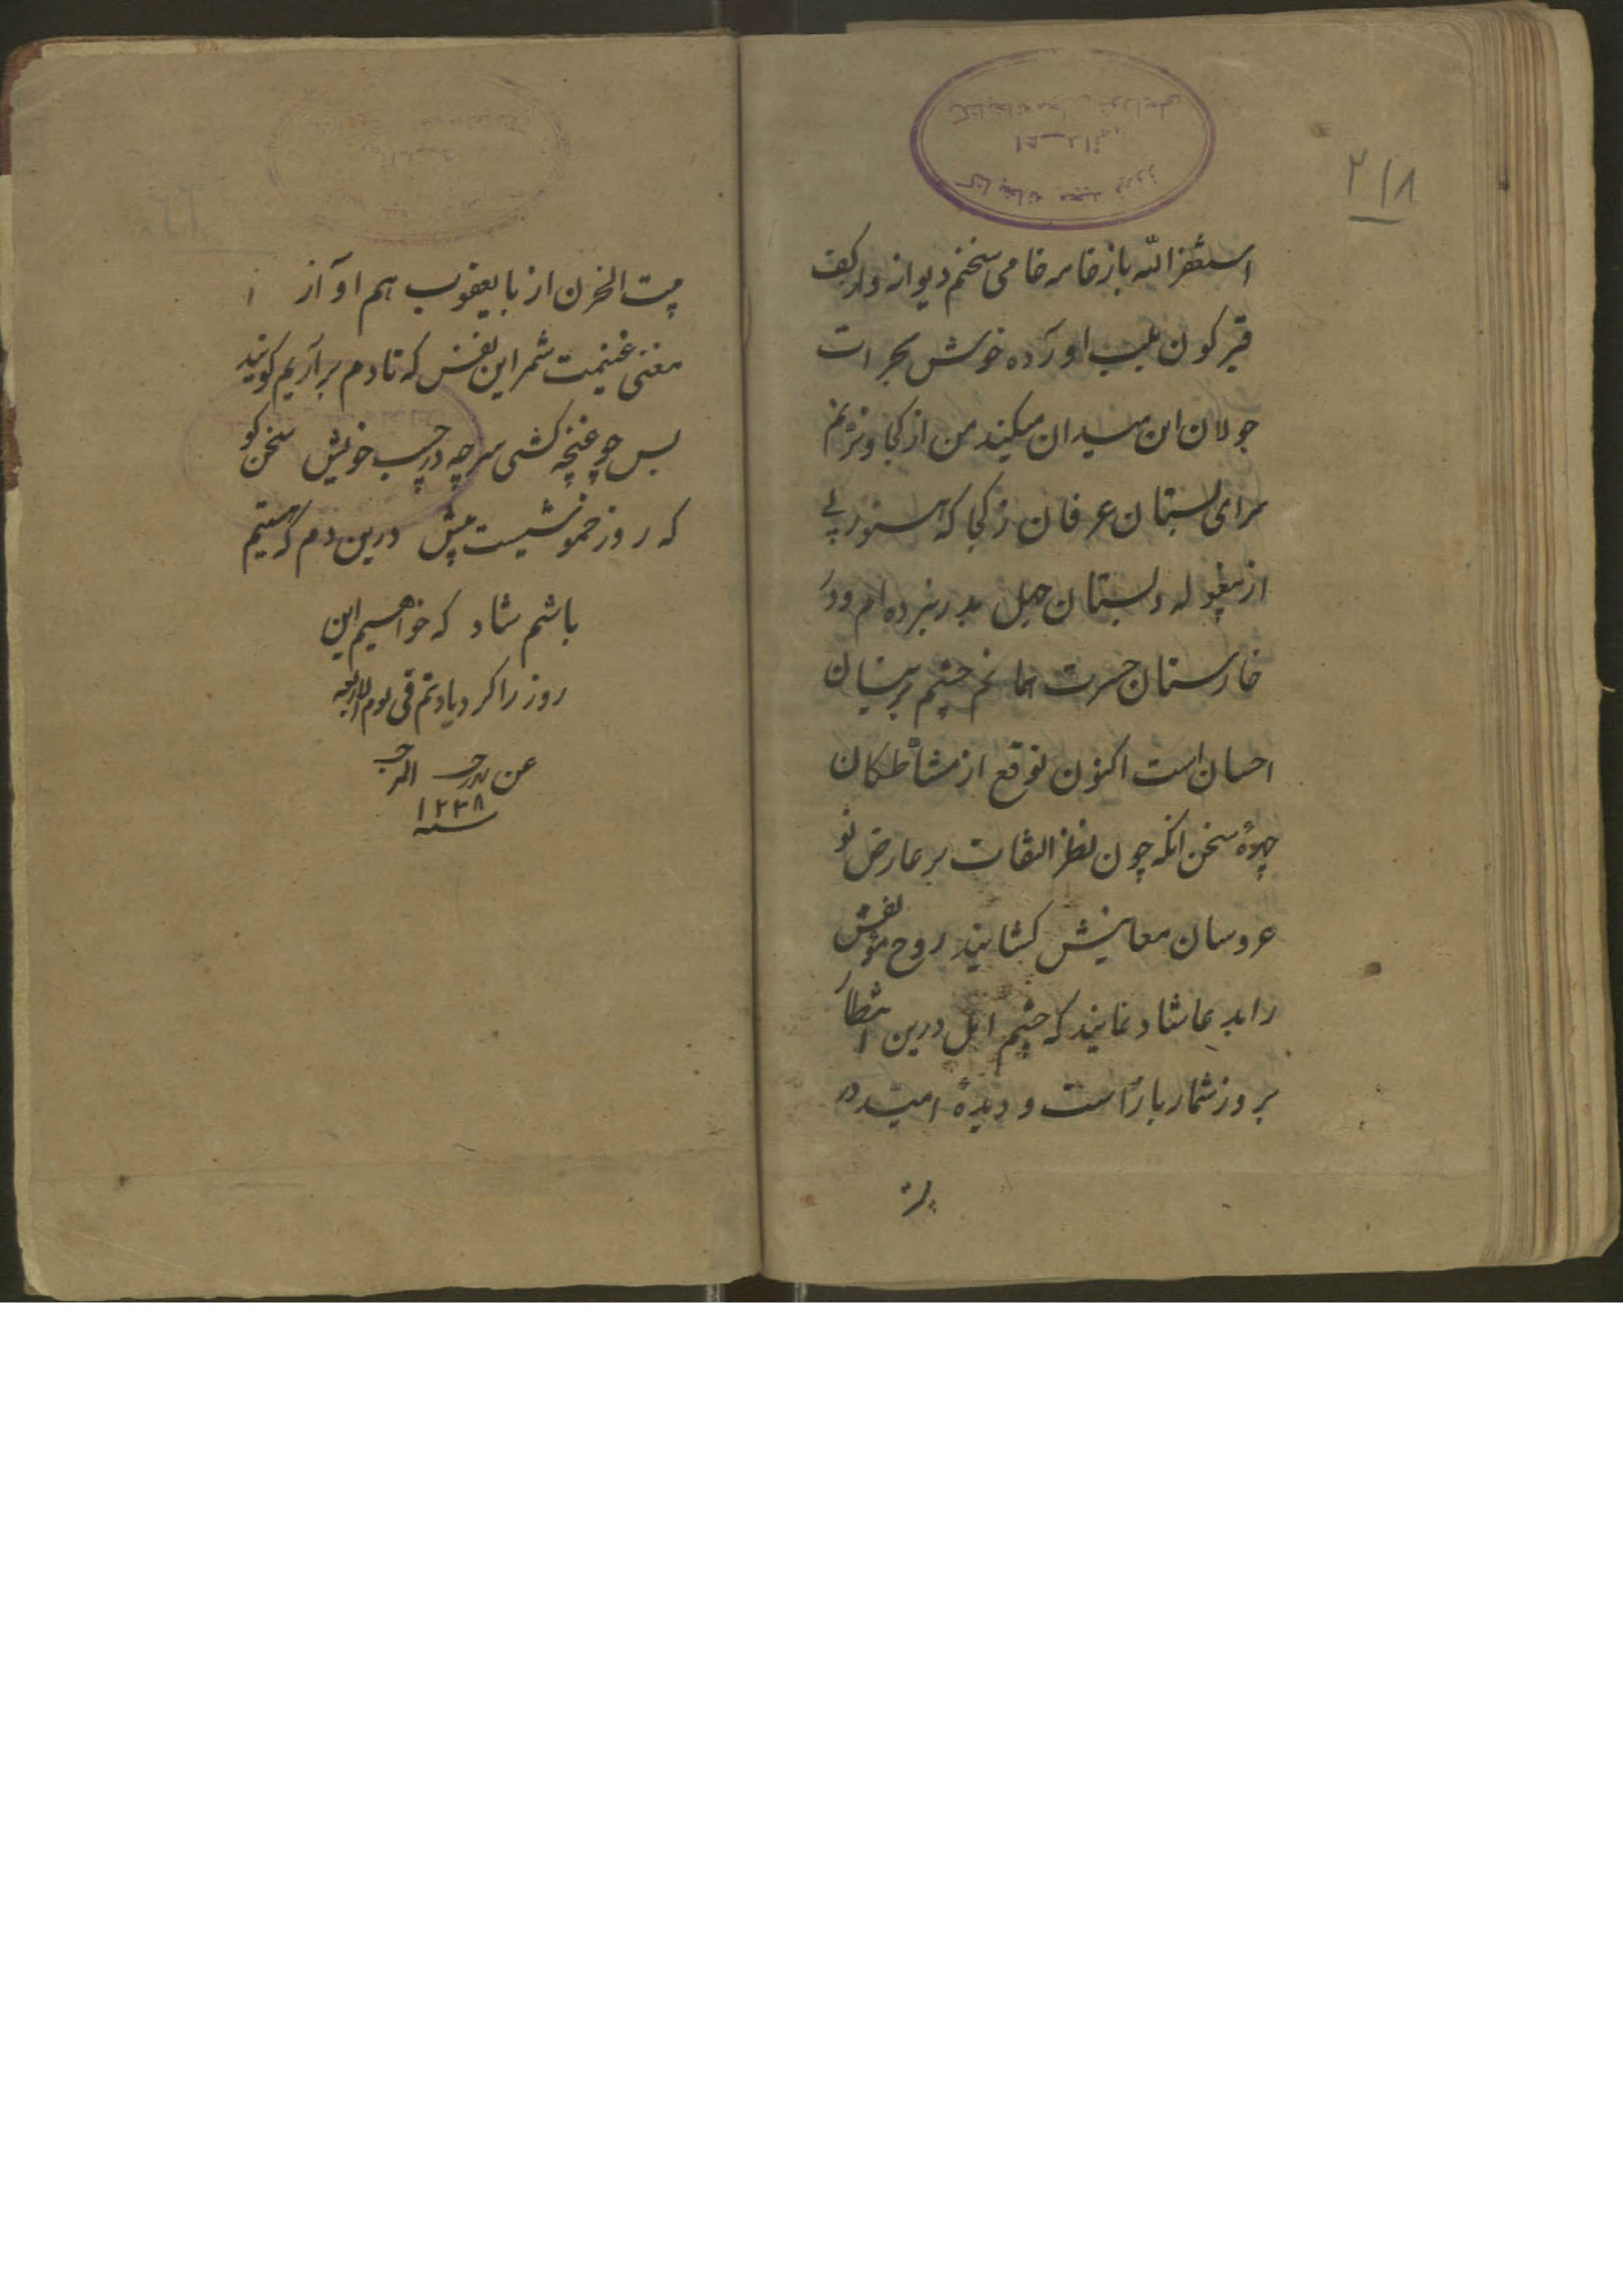 ۲۱۸
استغفر الله باز خامه خامی سخنم دیوانه وار کف
قیر کون بلب اورده خوش بجرات
جولان این میدان میکند من از کجا و نژنم
سرای بستان عرفان ز کجا که هنوز پی
از بیغوله دبستان جهل بدر نبرده ام و در
خارستان حسرت همانم چشم پرسیان
احسان است اکنون توقع از مشاطکان
چهرهٔ سخن انکه چون نظر التفات بر عارض نو
عروسان معانیش کشایند روح مؤلفش
را بدعا شاد نمایند که چشم امل درین انتظار
بروز شمار باز است و دیدهٔ امید در
بیت الحزن از با یعقوب هم اواز
مغنی غنیمت شمر این نفس که تا دم براریم کویند
بس چو غنچه کشی سر چه در جیب خویش سخن کو
که روز خموشیست پیش درین دم که هستیم
باشیم شاد که خواهیم این
روز را کرد یاد تم فی یوم الاربعه
عن رجب المرجب
سنه ۱۲۳۸